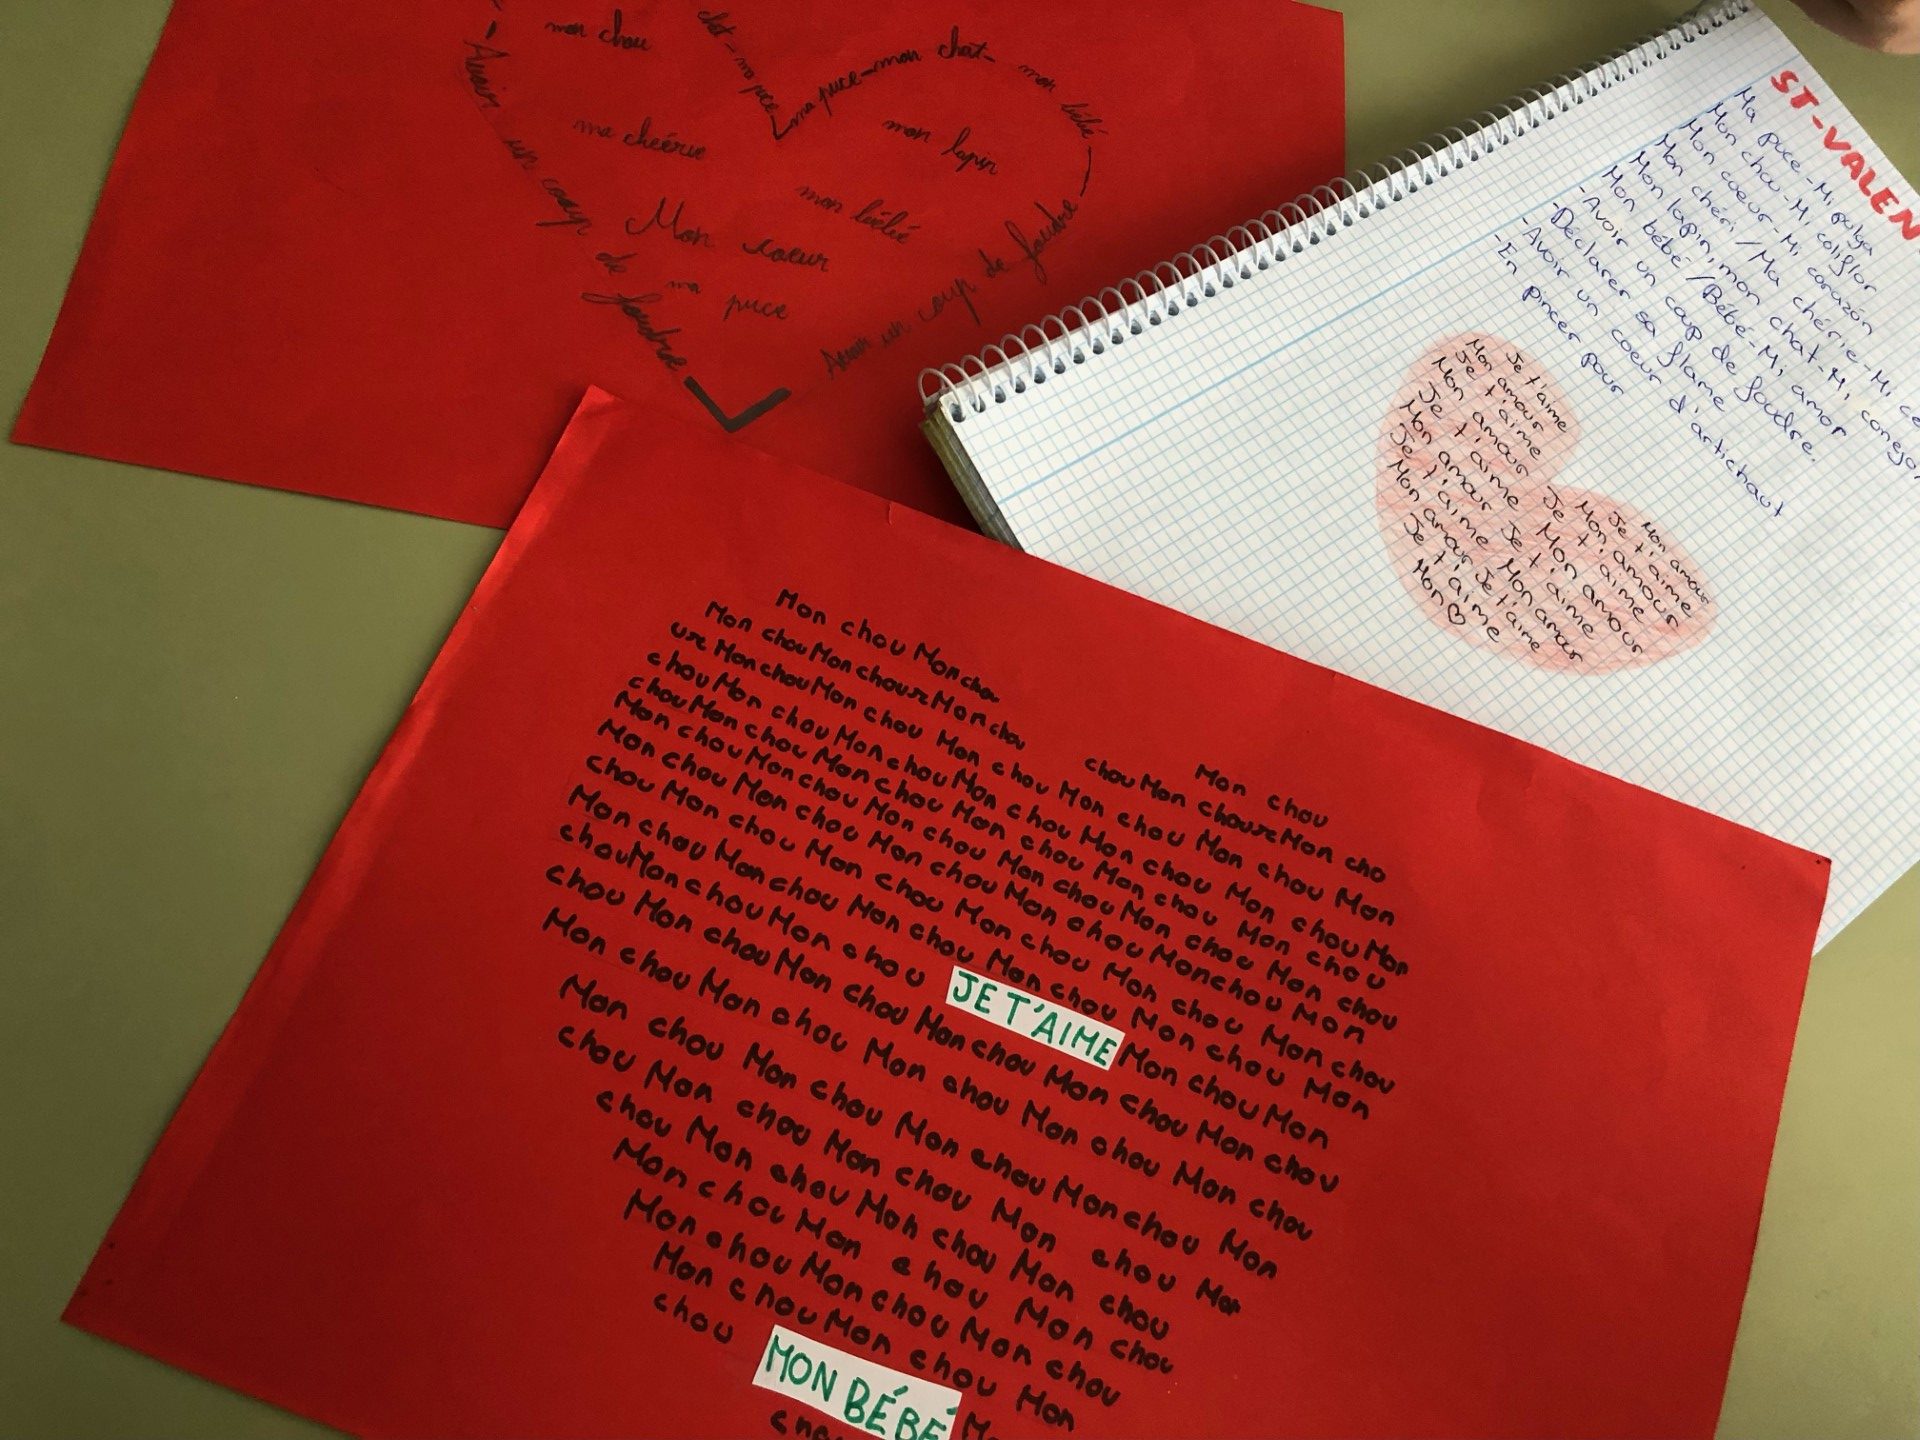 mon chou
ma puce-mon chat- mon bébé-
ma cheérie
mon lapin
mon bébé
Mon coeur
ma puce
Avoir un coup de foudre
Avoir un coup de foudre
ST-VALEN
Ma puce-Mi pulga
Mon chou-Mi coliflor
Mon coeur-Mi corazón
Mon chéri/Ma chérie-Mi
Mon lapin, mon chat-Mi conejo,
Mon bébé/Bébé-Mi amor
-Avoir un coup de foudre.
-Déclarer sa flame
-Avoir un coeur d'artichaut
-En pincer pour
Je t'aime
Mon amour
Je t'aime
Mon amour
Je t'aime
Mon amour
Je t'aime
Mon amour
Je t'aime
Mon ♡
Mon amour
Je t'aime
Mon amour
Je t'aime
Mon amour
Je t'aime
Mon amour
Je t'aime
Mon chou Mon chou
Mon chou Mon chou Mon chou
Mon chou
chou Mon chou Mon cho
Mon chou Mon chou Mon chou Mon chou Mon chou Mon
chou Mon chou Mon chou Mon chou Mon chou Mon chou Mon
chou Mon chou Mon chou Mon chou Mon chou Mon chou
Mon chou Mon chou Mon chou Mon chou Mon chou Mon chou
Mon chou Mon chou Mon chou Mon chou Mon chou Mon
chou Mon chou Mon chou Mon chou Mon chou Mon chou
Mon chou Mon chou Mon chou Mon chou Mon chou Mon
chou Mon chou Mon chou JE T'AIME Mon chou Mon
chou Mon chou Mon chou Mon chou Mon chou Mon chou
Mon chou Mon chou Mon chou Mon chou Mon chou
Mon chou Mon chou Mon chou Mon chou Mon
chou Mon chou Mon chou Mon chou Mon
chou Mon chou Mon chou Mon chou
Mon chou Mon chou Mon chou
Mon chou Mon chou Mon chou
Mon chou Mon chou Mon
chou MON BÉBÉ